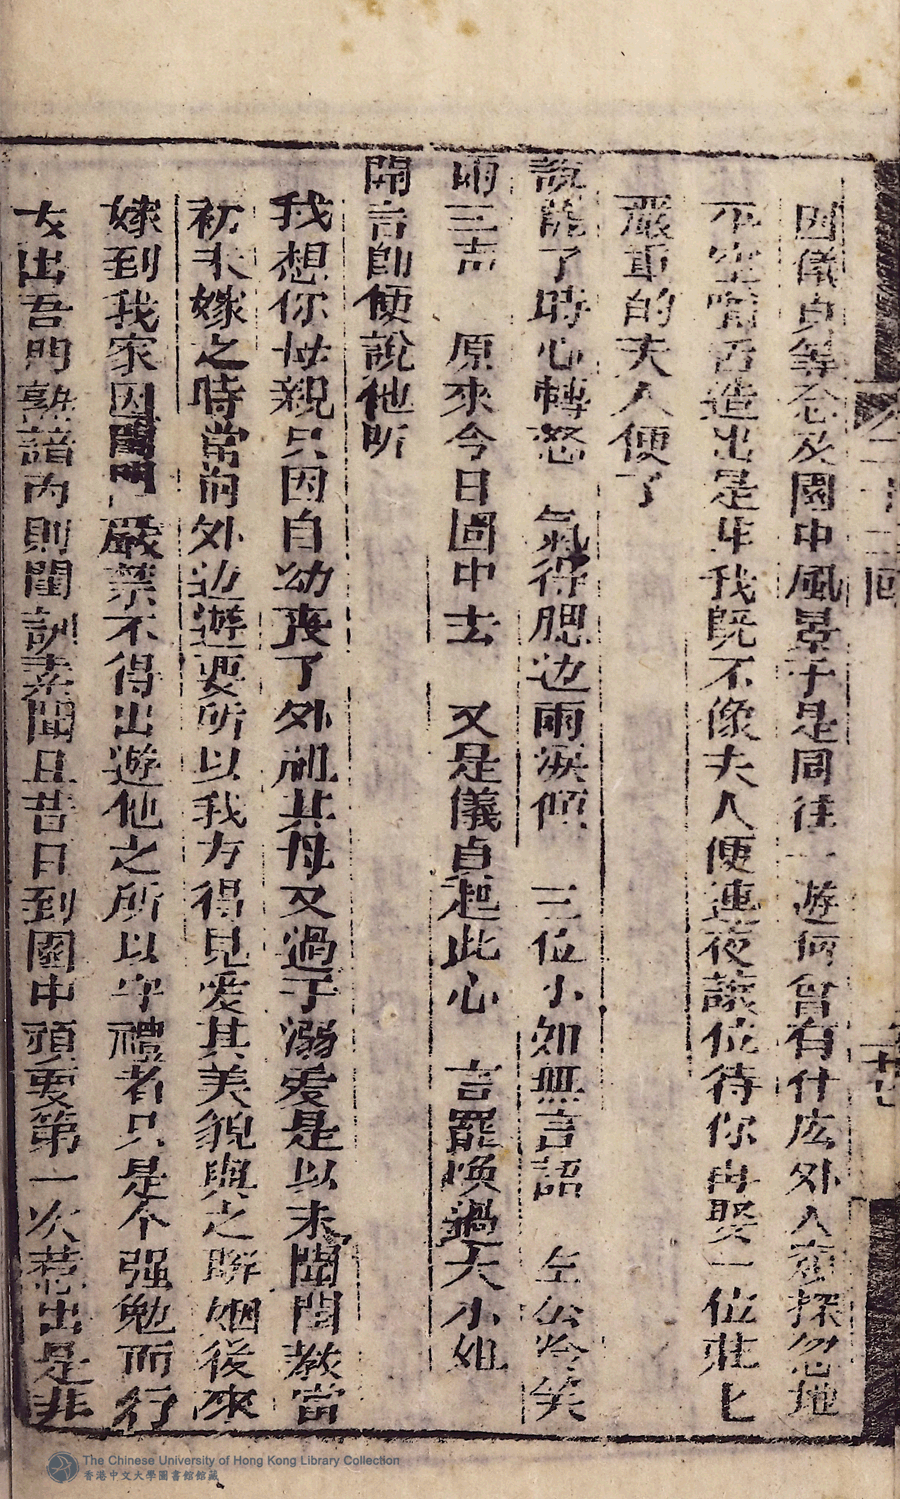 因儀貞等念及園中風景于是同往一遊何曾有什庅外人窺探忽地
不空嚼舌造出是非我既不像夫人便連夜讓位待你再娶一位莊匕
嚴重的夫人便了
說罷了時心轉怒 氣得腮边雨淚傾 三位小如無言語 左公冷笑
兩三声 原來今日園中去 又是儀貞起此心 言罷喚過大小姐
開言即便說他听
我想你母親只因自幼喪了外祖其母又過于溺爱是以未聞閨教當
初未嫁之時常向外边遊耍所以我方得見爱其美貌與之聨姻後來
嫁到我家因閨門嚴禁不得出遊他之所以守禮者只是个强勉而行
女出吾門熟諳内則閨訓素聞且昔日到園中頑耍第一次惹出是非
二十二回
The Chinese University of Hong Kong Library Collection
香港中文大學圖書館館藏